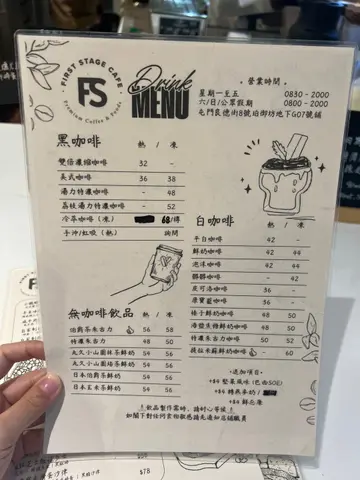 FIRST STAGE CAFE
FS
Premium Coffee & Foods
Drink
MENU
· 營業時間 ·
星期一至五 0830 - 2000
六/日/公眾假期 0800 - 2000
屯門良德街8號珀御坊地下G07號鋪
黑咖啡 熱 / 凍
雙倍濃縮咖啡 32 -
美式咖啡 36 38
湯力特濃咖啡 - 48
荔枝湯力特濃咖啡 - 52
冷萃咖啡 (凍) 68/樽
手沖/虹吸 (熱) 詢問
白咖啡 熱 / 凍
平白咖啡 42 -
鮮奶咖啡 42 44
泡沫咖啡 42 44
髒髒咖啡 - 42
皮可洛咖啡 36 -
瑪奇朵咖啡 36 -
榛子鮮奶咖啡 48 50
海鹽焦糖鮮奶咖啡 48 50
特濃朱古力咖啡 50 52
提拉米蘇鮮奶咖啡 - 60
無咖啡飲品 熱 / 凍
伯爵茶朱古力 56 58
特濃朱古力 48 50
丸久小山園抹茶鮮奶 54 56
丸久小山園焙茶鮮奶 54 56
日本伯爵茶鮮奶 54 56
日本玄米茶鮮奶 54 56
· 追加項目 ·
+$4 堅果風味 (巴西SOE)
+$4 轉燕麥奶 /
+$4 鮮忌廉
! 飲品製作需時，請耐心等候 !
如閣下對任何食物敏感請先通知店舖職員
$78